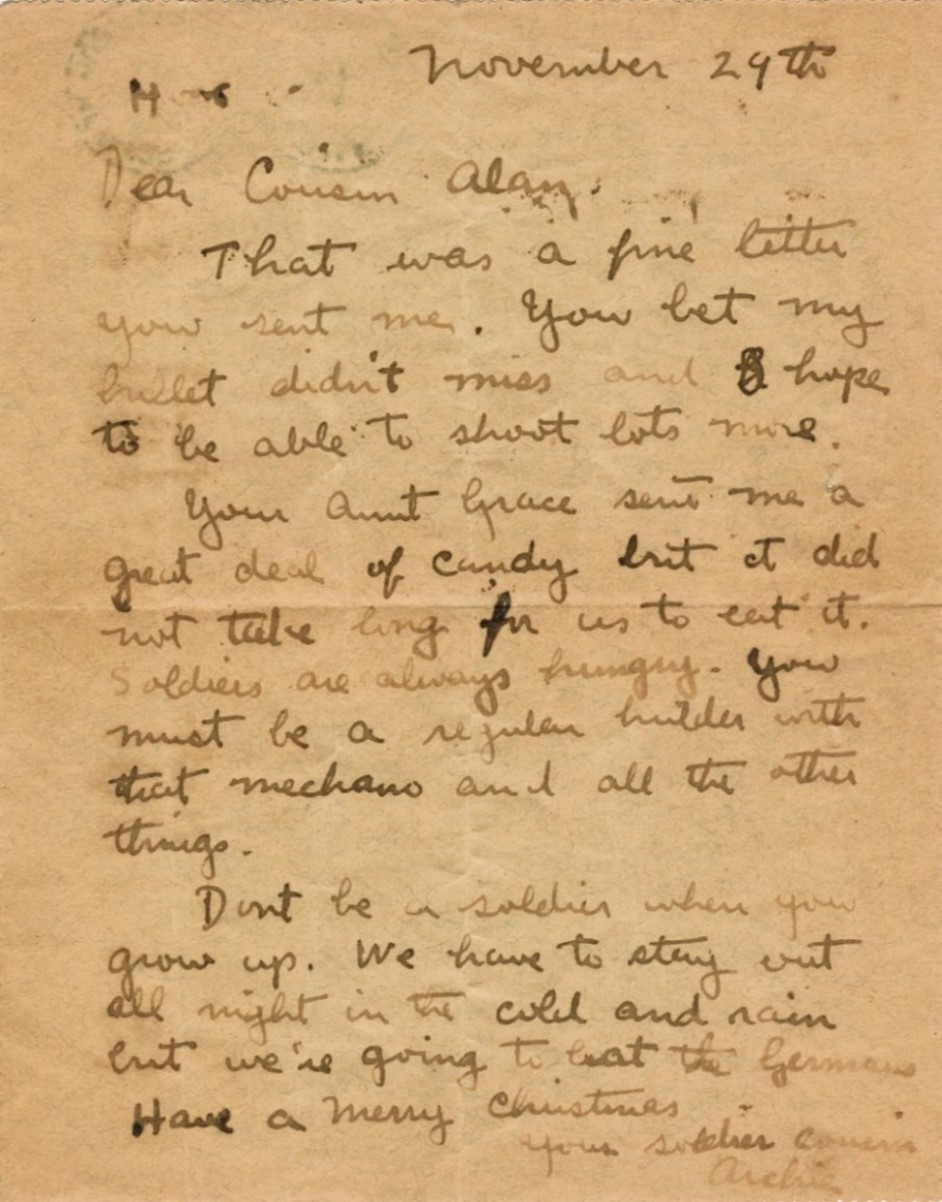 November 29th
Dear Cousin Alan.
That was a fine letter
you sent me. You bet my
bullet didn't miss and I hope
to be able to shoot lots more.
Your Aunt Grace sent me a
great deal of candy but it did
not take long for us to eat it.
Soldiers are always hungry. You
must be a regular builder with
that mechano and all the other
things.
Dont be a soldier when you
grow up. We have to stay out
all night in the cold and rain
but we're going to beat the Germans
Have a Merry Christmas
your soldier cousin
Archie